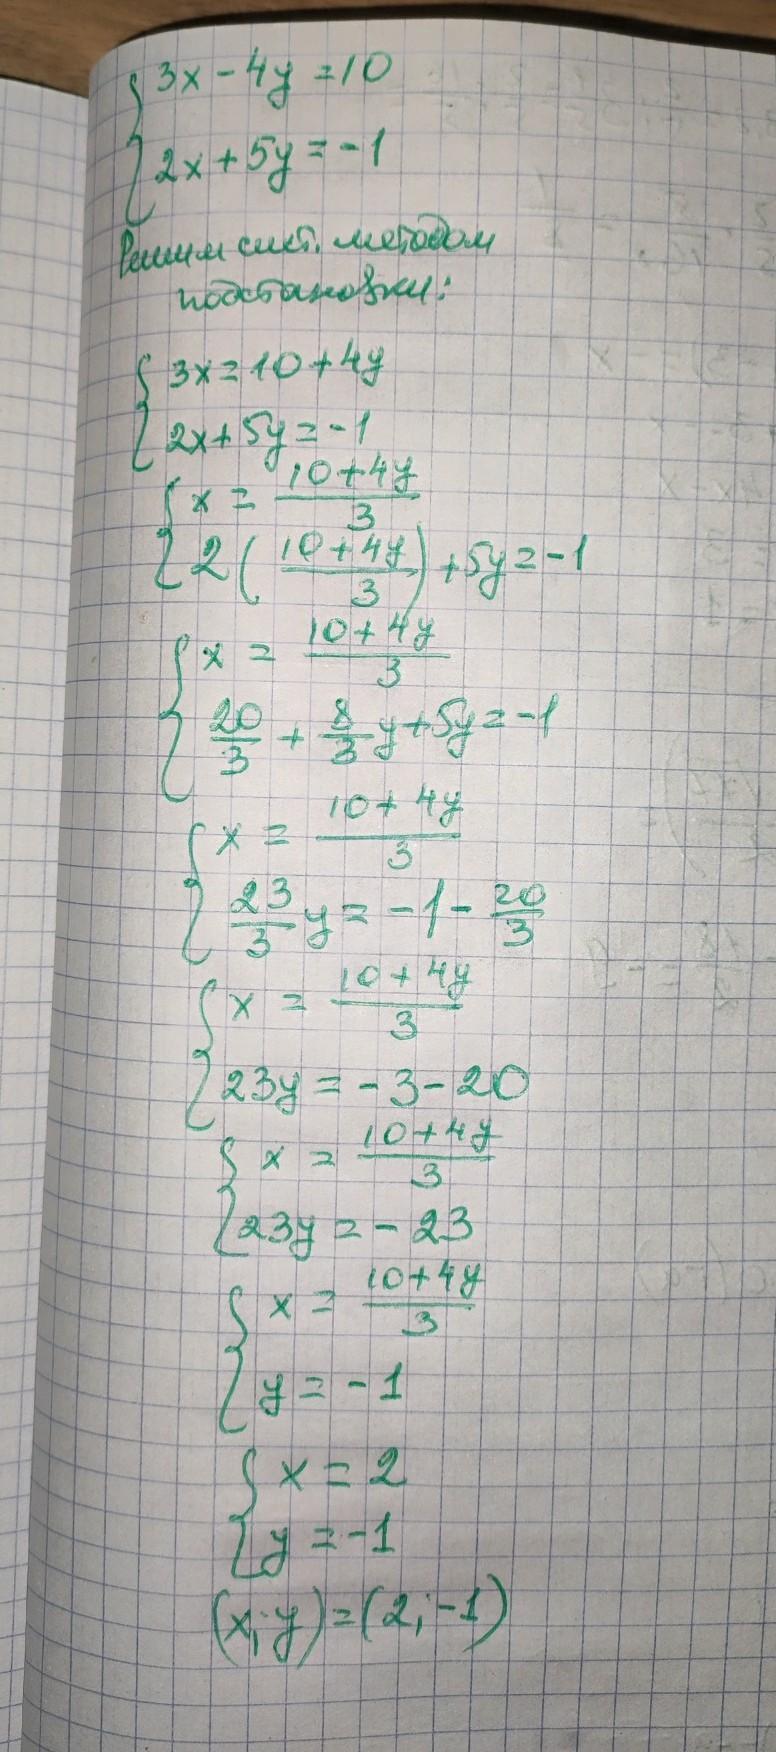 3x - 4y = 10
2x + 5y = -1
Решим сист. методом
подстановки:
3x = 10 + 4y
2x + 5y = -1
x = (10 + 4y)/3
2((10 + 4y)/3) + 5y = -1
x = (10 + 4y)/3
20/3 + 8/3 y + 5y = -1
x = (10 + 4y)/3
23/3 y = -1 - 20/3
x = (10 + 4y)/3
23y = -3 - 20
x = (10 + 4y)/3
23y = -23
x = (10 + 4y)/3
y = -1
x = 2
y = -1
(x; y) = (2; -1)